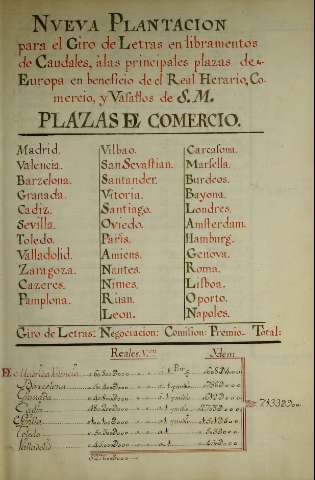 NVEVA PLANTACION
para el Giro de Letras en libramentos
de Caudales, à las principales plazas de
Europa en beneficio de el Real Herario, Co-
mercio, y Vasallos de S.M.
PLAZAS DEL COMERCIO.
Madrid. Vilbao. Carcasona.
Valencia. San Sevastian. Marsella.
Barzelona. Santander. Burdeos.
Granada. Vitoria. Bayona.
Cadiz. Santiago. Londres.
Sevilla. Oviedo. Amsterdam.
Toledo. Paris. Hamburg.
Valladolid. Amiens. Genova.
Zaragoza. Nantes. Roma.
Cazeres. Nimes. Lisboa.
Pamplona. Ruan. Oporto.
Leon. Napoles.
Giro de Letras: Negociacion: Comision: Premio: Total:
Reales Von Ydem
Valencia
Barcelona
Granada
Cadiz
Sevilla
Toledo
Valladolid